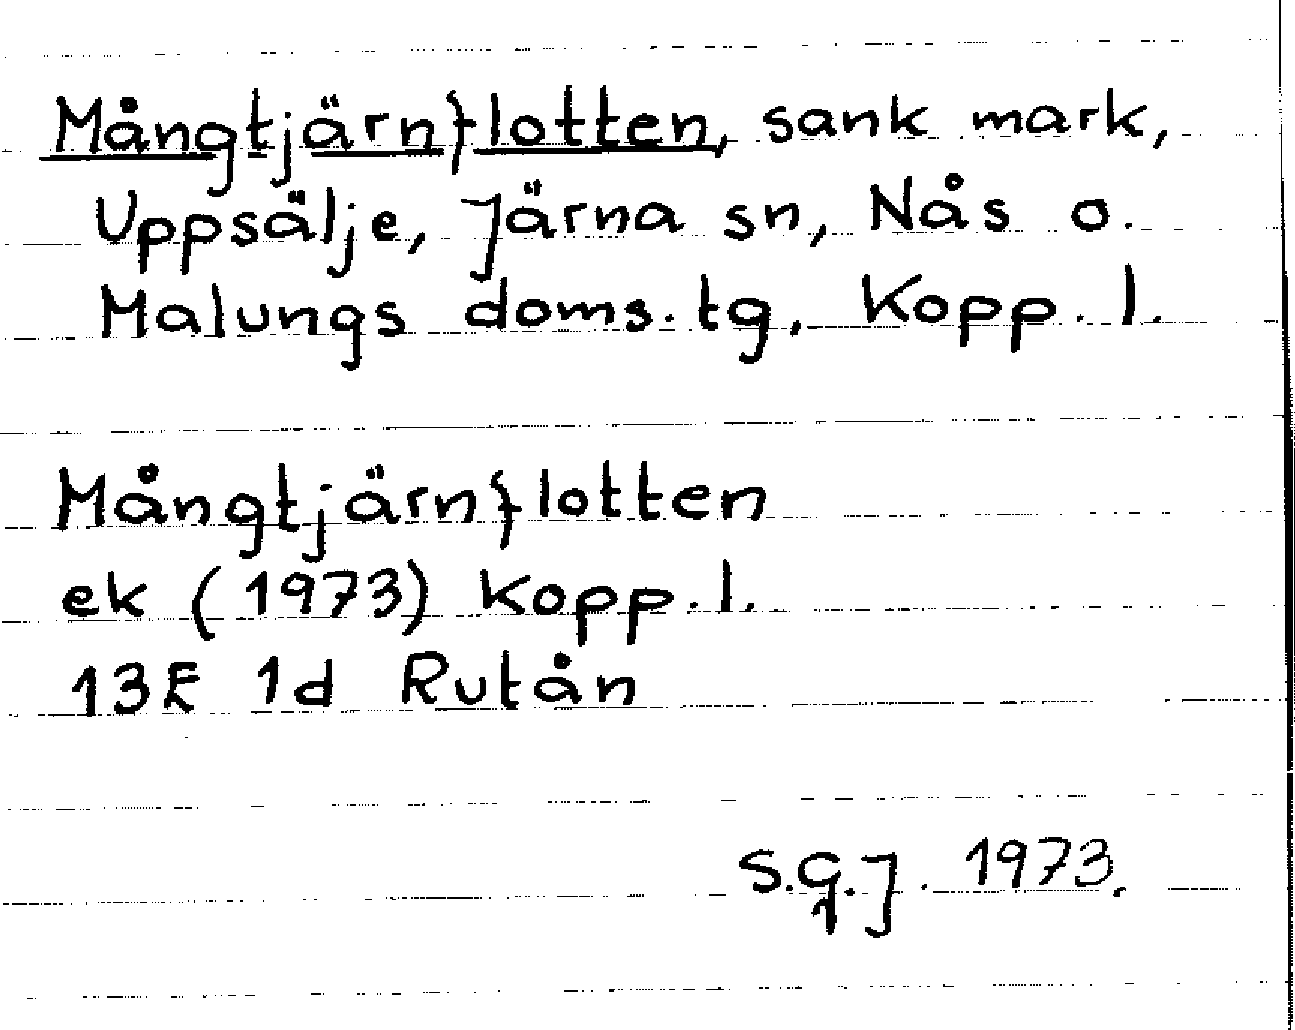 Mångtjärnflotten, sank mark,
Uppsälje, Järna sn, Nås o.
Malungs doms.tg, Kopp. l.
Mångtjärnflotten
ek (1973) Kopp. l.
13E 1d Rutån
S.G.J. 1973.